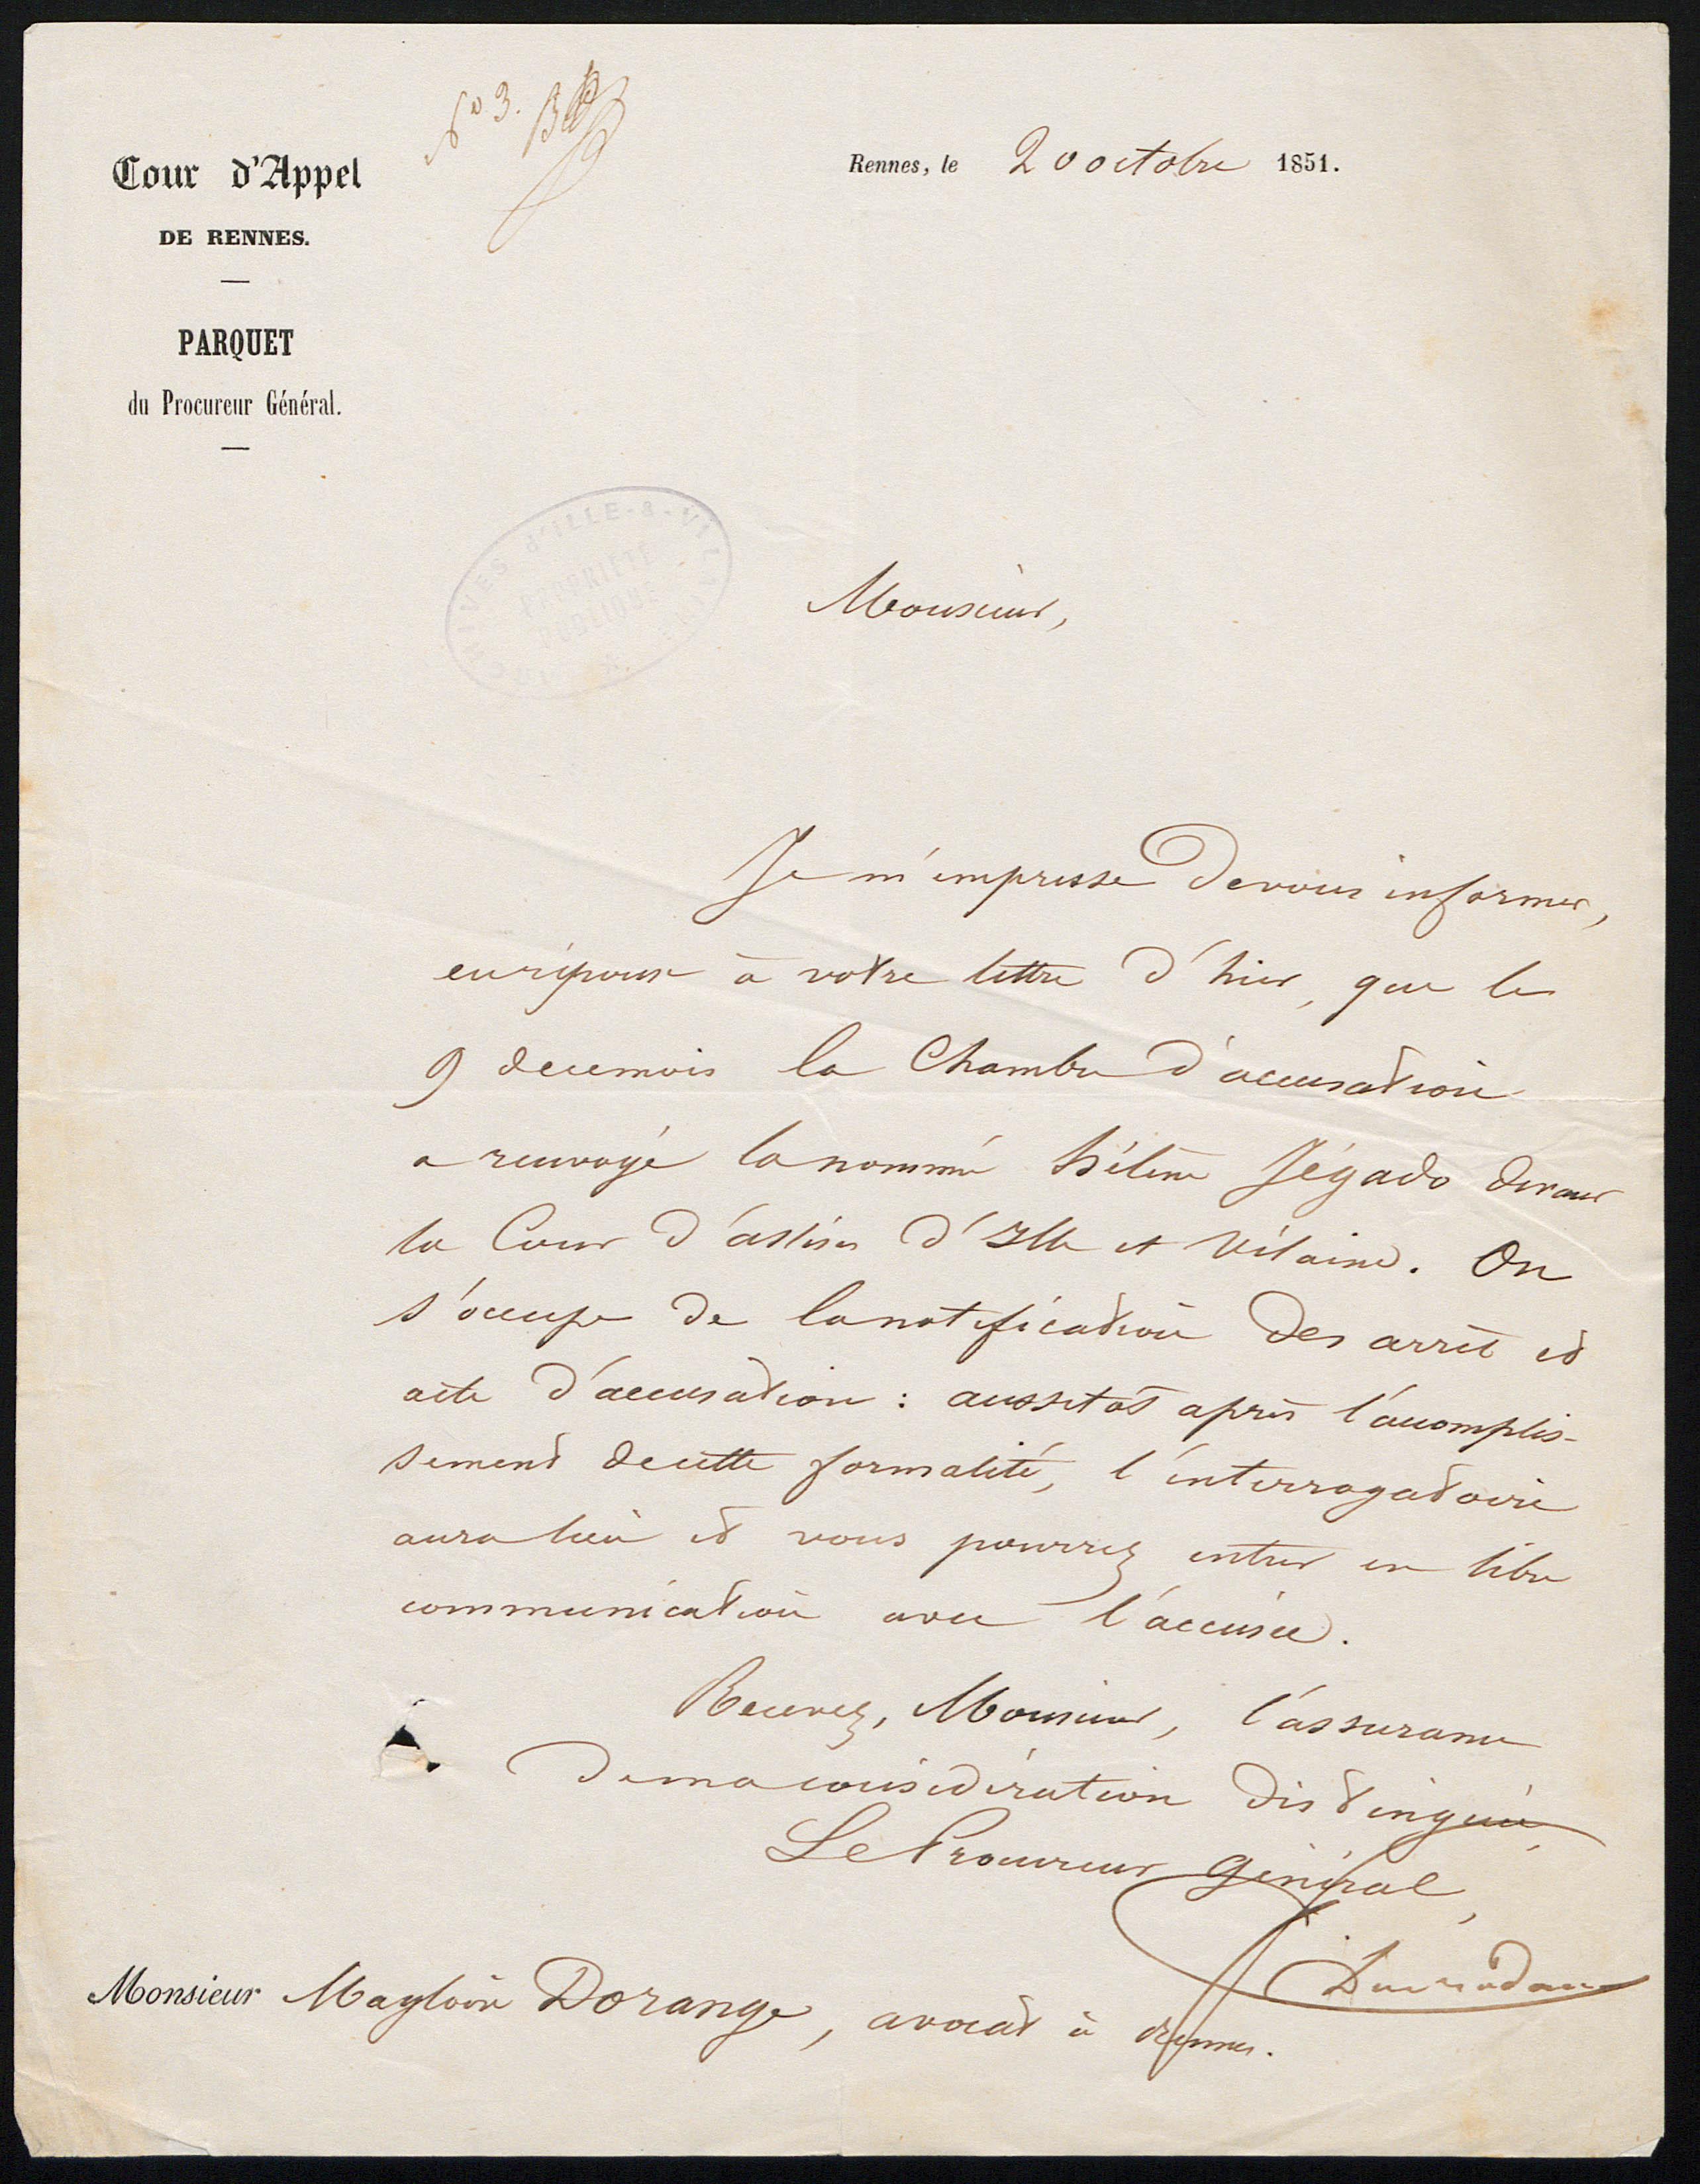 No 3.
Cour d'Appel
DE RENNES.
PARQUET
du Procureur Général.
Rennes, le 20 octobre 1851.
ARCHIVES d'ILLE-&-VILAINE
PROPRIÉTÉ
PUBLIQUE
Monsieur,
Je m'empresse de vous informer,
en réponse à votre lettre d'hier, que le
9 de ce mois la Chambre d'accusation
a renvoyé la nommée hélène Jégado devant
la Cour d'assises d'Ille et Vilaine. On
s'occupe de la notification des arrêt et
acte d'accusation : aussitot après l'accomplis-
sement de cette formalité, l'interrogatoire
aura lieu et vous pourrez entrer en libre
communication avec l'accusée.
Recevez, Monsieur, l'assurance
de ma considération distinguée,
Le Procureur Général,
Monsieur Magloire Dorange, avocat à rennes.